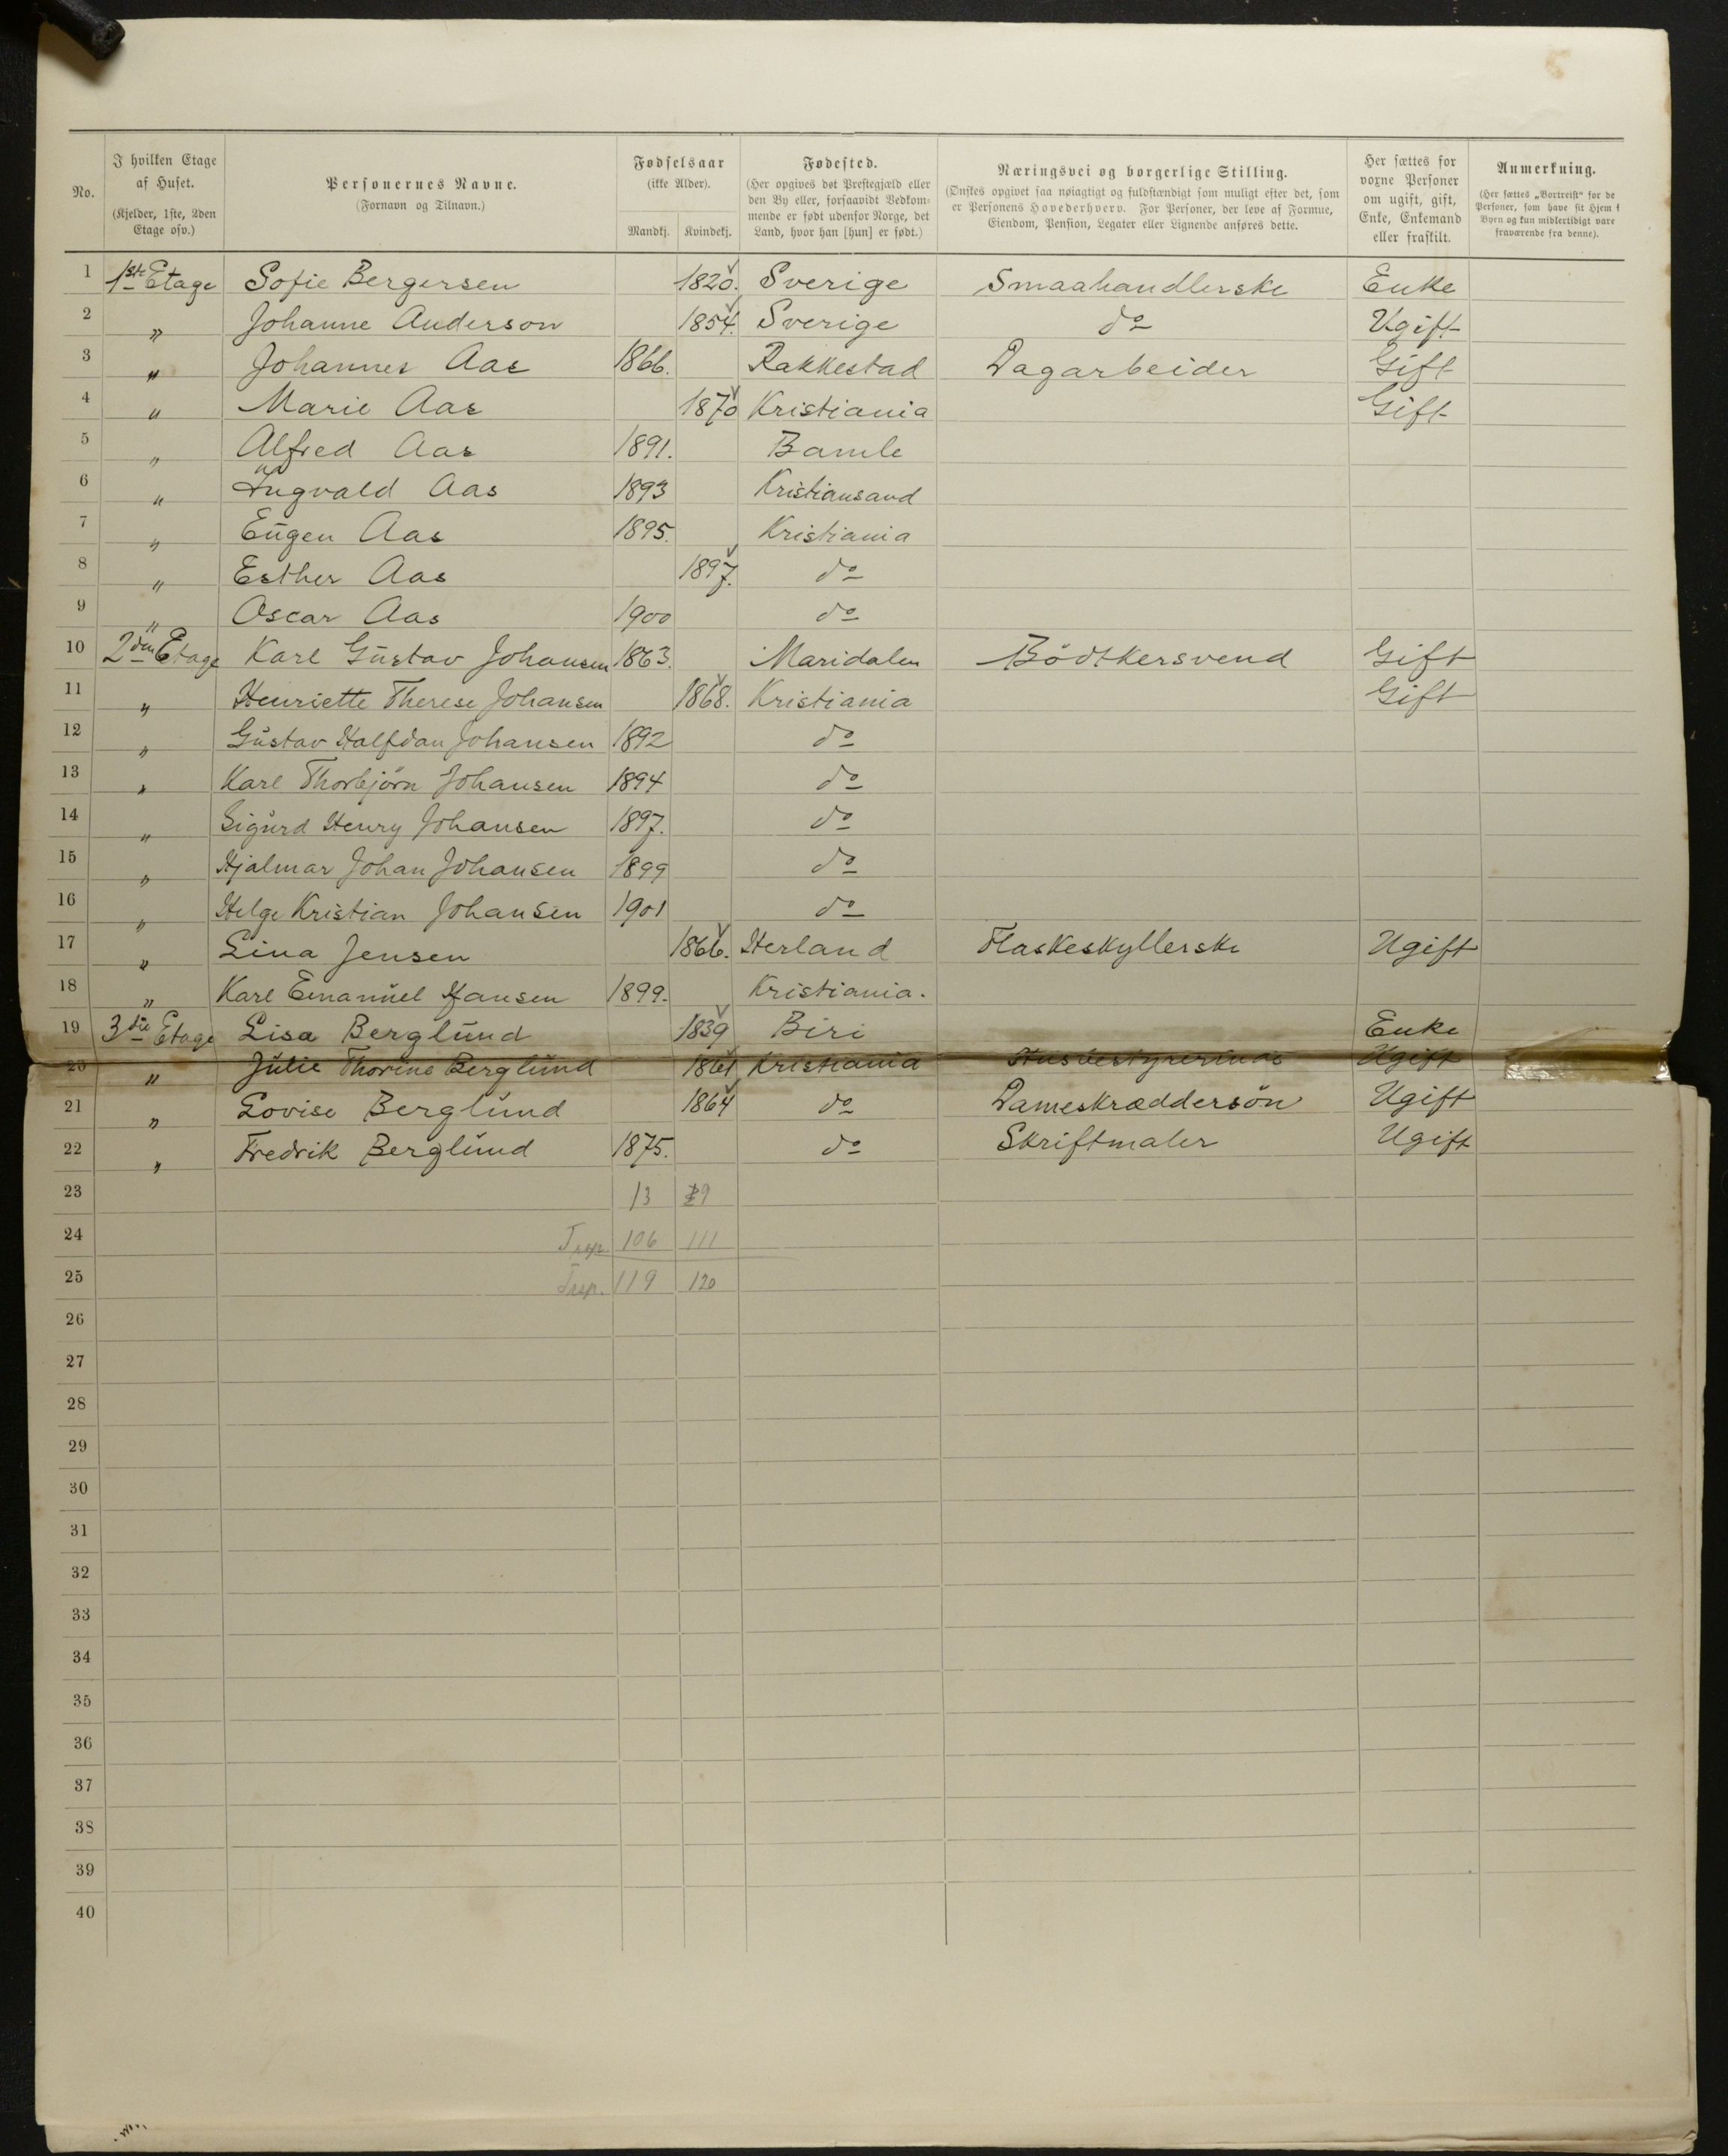 No.
I hvilken Etage af Huset.
(Kjelder, 1ste, 2den Etage osv.)
Personernes Navne.
(Fornavn og Tilnavn.)
Fødselsaar
(ikke Alder).
Mandkj. Kvindekj.
Fødested.
(Her opgives det Prestegjæld eller
den By eller, forsaavidt Vedkom-
mende er født udenfor Norge, det
Land, hvor han [hun] er født.)
Næringsvei og borgerlige Stilling.
(Ønskes opgivet saa nøiagtigt og fuldstændigt som muligt efter det, som
er Personens Hovederhverv. For Personer, der leve af Formue,
Eiendom, Pension, Legater eller Lignende anføres dette.
Her sættes for
voxne Personer
om ugift, gift,
Enke, Enkemand
eller fraskilt.
Anmerkning.
(Her sættes „Bortreist“ for de
Personer, som have sit Hjem i
Byen og kun midlertidigt vare
fraværende fra denne).
1 1ste Etage Sofie Bergersen 1820. Sverige Smaahandlerske Enke
2 " Johanne Anderson 1854. Sverige do Ugift
3 " Johannes Aas 1866. Rakkestad Dagarbeider Gift
4 " Marie Aas 1870 Kristiania Gift
5 " Alfred Aas 1891. Bamle
6 " Ingvald Aas 1893 Kristiansand
7 " Eugen Aas 1895. Kristiania
8 " Esther Aas 1897. do
9 " Oscar Aas 1900 do
10 2den Etage Karl Gustav Johansen 1863. Maridalen Bödtkersvend Gift
11 " Henriette Therese Johansen 1868. Kristiania Gift
12 " Gustav Halfdan Johansen 1892 do
13 " Karl Thorbjörn Johansen 1894 do
14 " Sigurd Henry Johansen 1897. do
15 " Hjalmar Johan Johansen 1899 do
16 " Helge Kristian Johansen 1901 do
17 " Lina Jensen 1866. Herland Flaskeskyllerske Ugift
18 " Karl Emanuel Hansen 1899. Kristiania.
19 3die Etage Lisa Berglund 1839 Biri Enke
20 " Julie Thorine Berglund 1861 Kristiania Husbestyrerinde Ugift
21 " Lovise Berglund 1864 do Dameskræddersön Ugift
22 " Fredrik Berglund 1875. do Skriftmaler Ugift
23 13 9
24 106 111
25 119 120
26
27
28
29
30
31
32
33
34
35
36
37
38
39
40